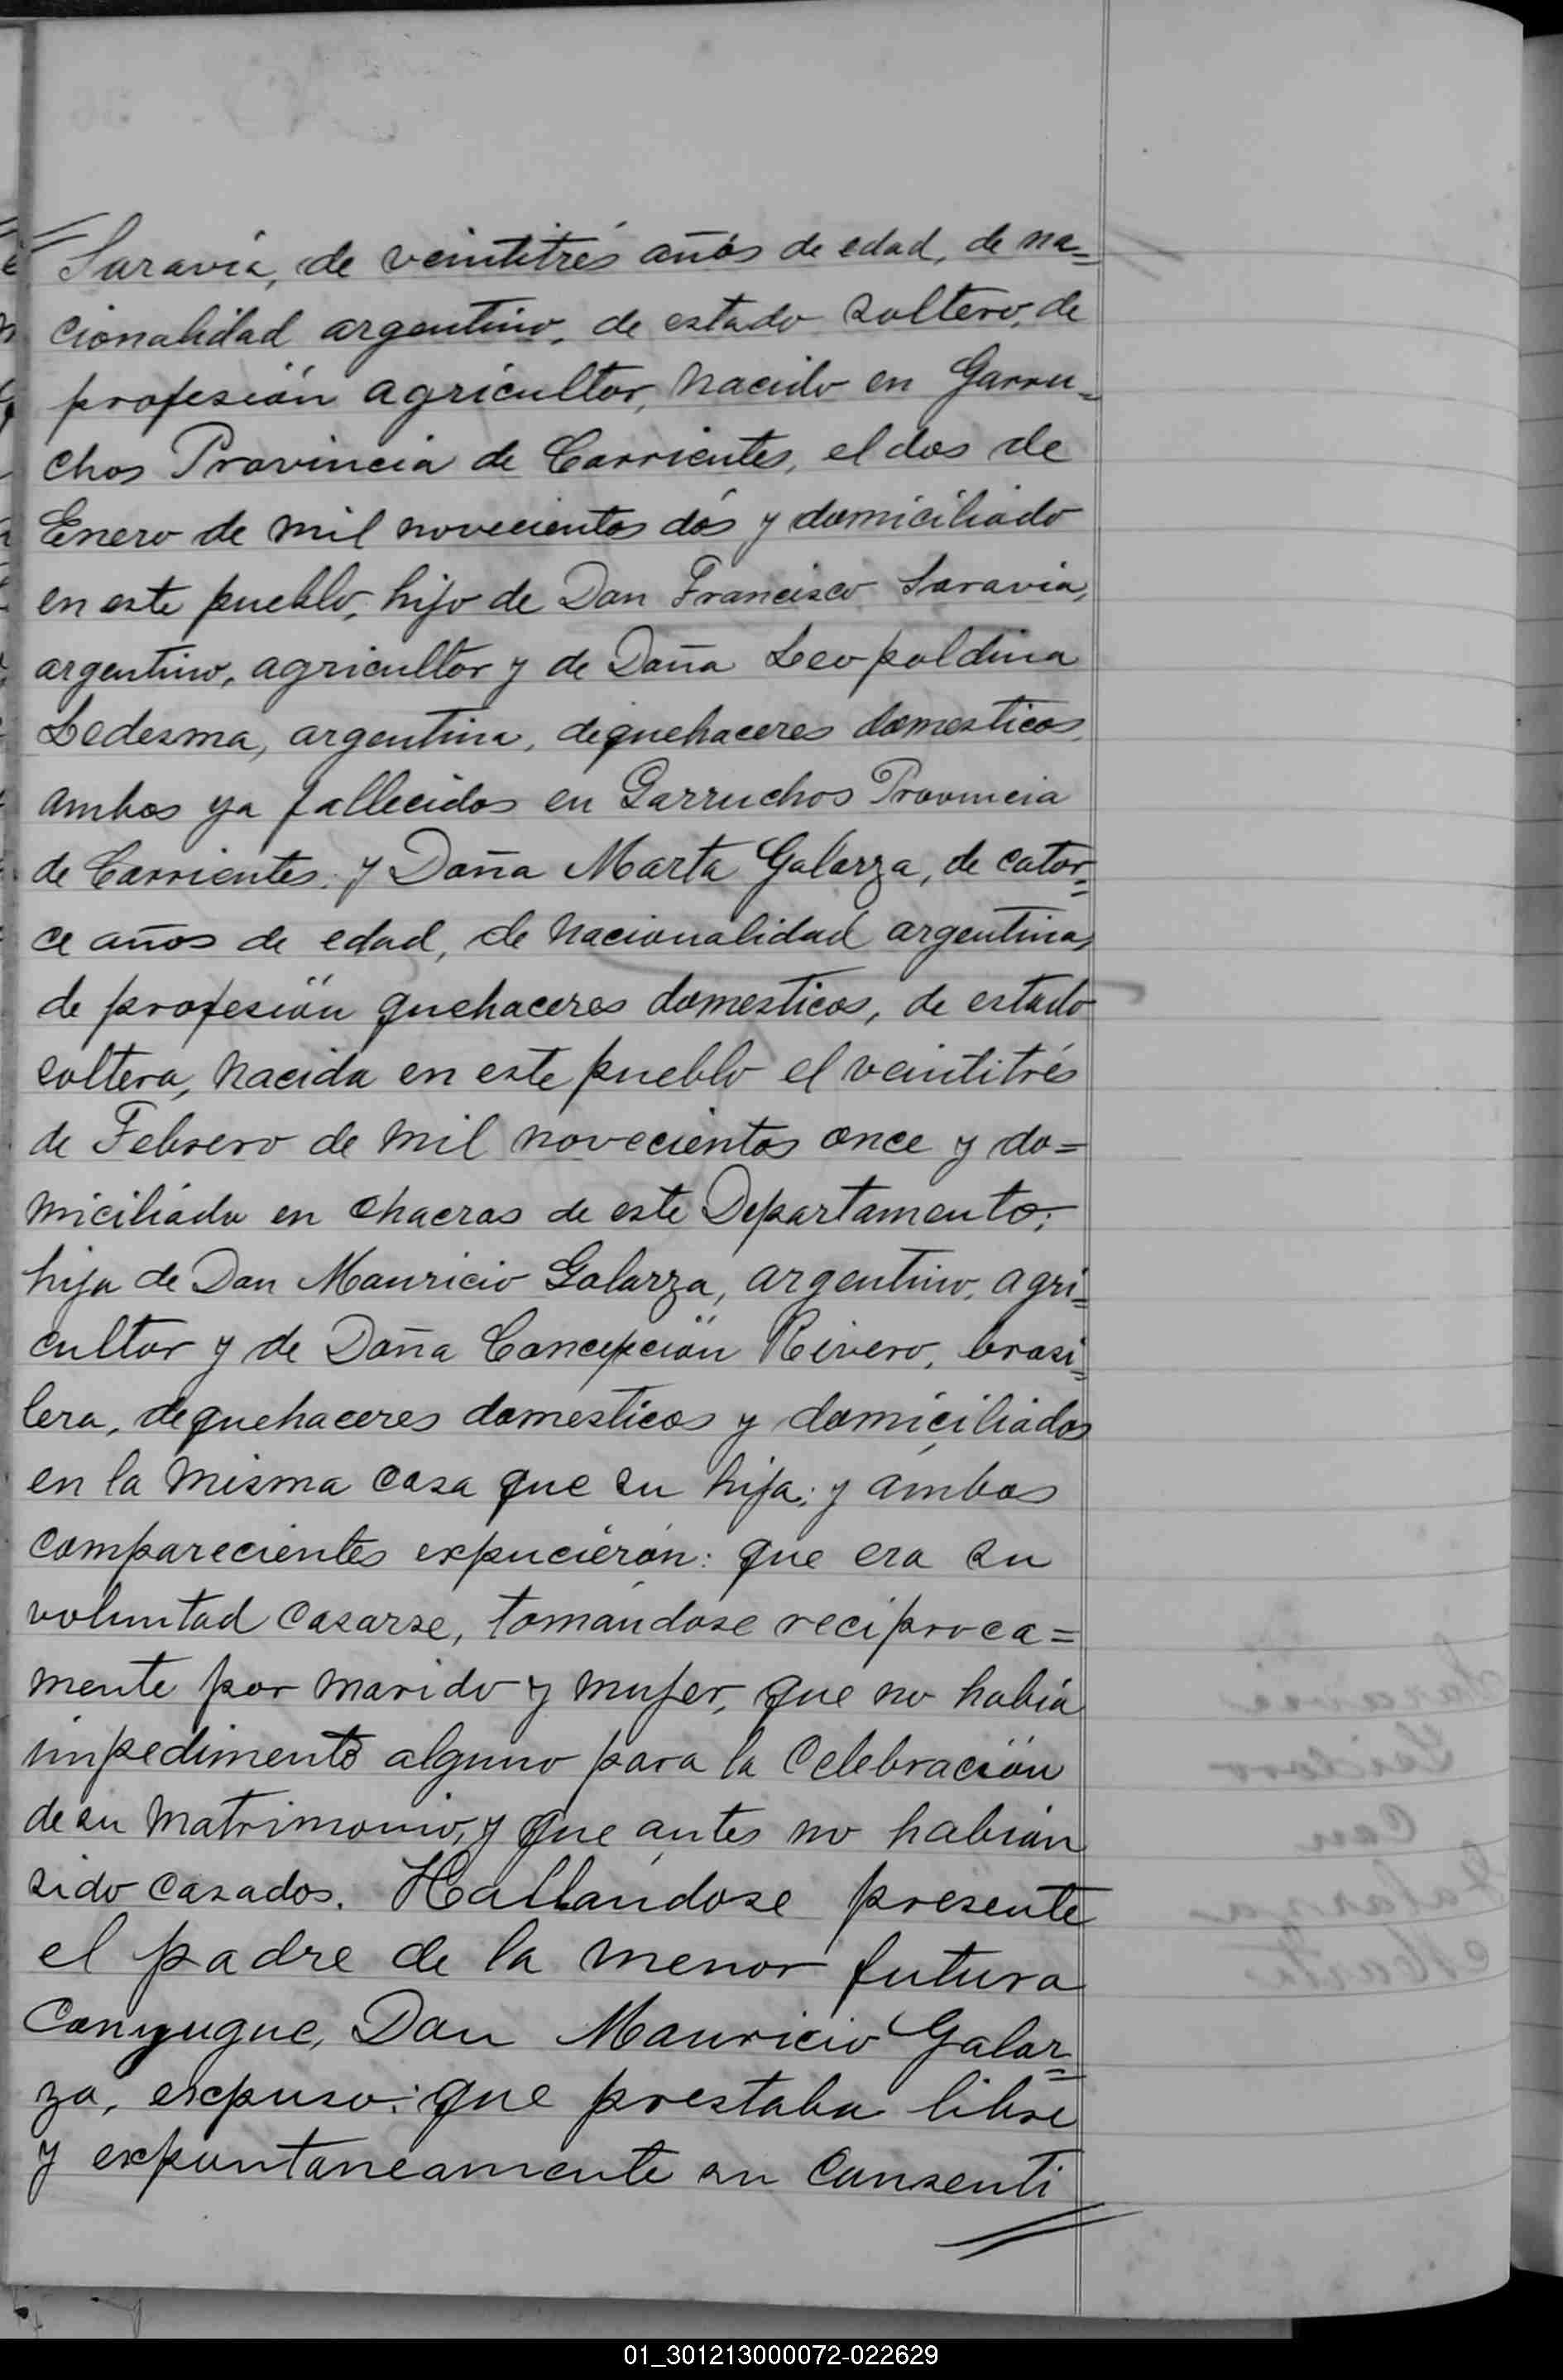 Saravia, de veintitrés años de edad, de na=
cionalidad argentino, de estado soltero, de
profesión agricultor, nacido en Garru=
chos Provincia de Corrientes, el dos de
Enero de mil novecientos dós y domiciliado
en este pueblo, hijo de Don Francisco Saravia,
argentino, agricultor y de Doña Leopoldina
Ledesma, argentina, de quehaceres domesticos,
ambos ya fallecidos en Garruchos Provincia
de Corrientes; y Doña Marta Galarza, de cator=
ce años de edad, de nacionalidad argentina,
de profesión quehaceres domesticos, de estado
soltera, nacida en este pueblo el veintitrés
de Febrero de mil novecientos once y do=
miciliada en chacras de este Departamento;
hija de Don Mauricio Galarza, argentino, agri=
cultor y de Doña Concepción Rivero, brasi=
lera, de quehaceres domesticos y domiciliados
en la misma casa que su hija; y ambos
comparecientes expucierón: que era su
voluntad casarse, tomándose reciproca=
mente por marido y mujer, que no había
impedimento alguno para la celebración
de su matrimonio, y que antes no habían
sido casados. Hallandose presente
el padre de la menor futura
Conyugue, Don Mauricio Galar=
za, expuso: que prestaba libre
y expontaneamente su consenti
01_301213000072-022629